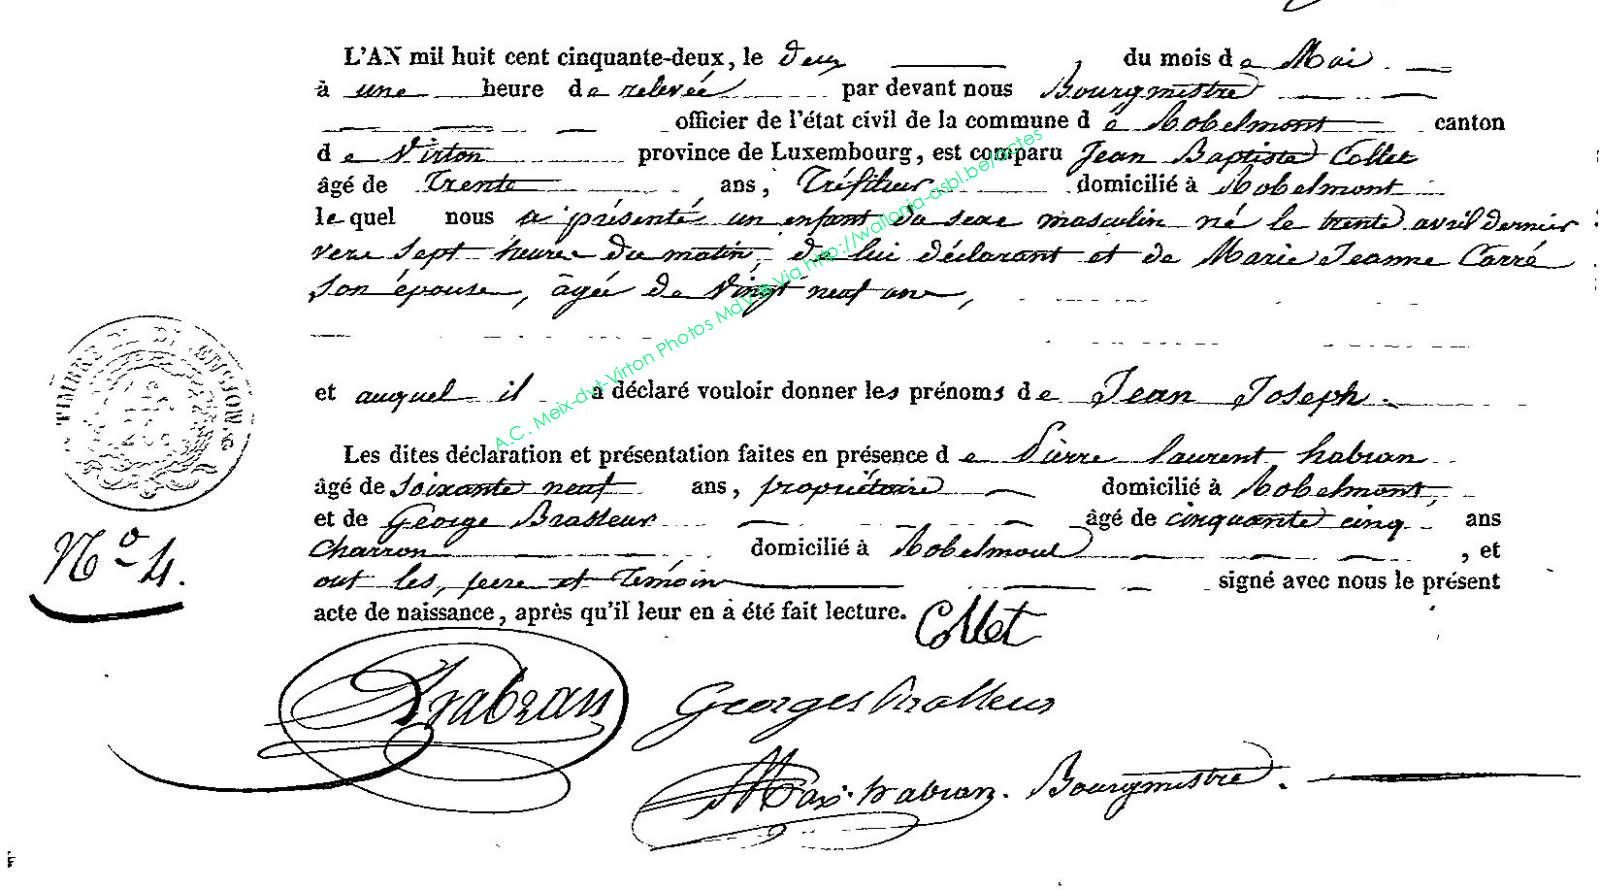 L'AN mil huit cent cinquante-deux, le deux, du mois de Mai
à une heure de relevée par devant nous Bourgmestre
officier de l'état civil de la commune de Robelmont canton
de Virton province de Luxembourg, est comparu Jean Baptiste Collet
âgé de Trente ans, Tréfileur domicilié à Robelmont
lequel nous a présenté un enfant du sexe masculin né le trente avril dernier
vers sept heures du matin, de lui déclarant et de Marie Jeanne Carré
son épouse, âgée de Vingt neuf ans,
et auquel il a déclaré vouloir donner les prénoms de Jean Joseph.
Les dites déclaration et présentation faites en présence de Pierre Laurent habran
âgé de soixante neuf ans, propriétaire domicilié à Robelmont,
et de George Brasseur âgé de cinquante cinq ans
Charron domicilié à Robelmont, et
ont les, pere et Temoin signé avec nous le présent
acte de naissance, après qu'il leur en à été fait lecture. Collet
N° 4.
Habran Georges Brasseur
Max. habran. Bourgmestre.
A.C. Meix-dvt-Virton Photos MdVB Via http://wallonia-asbl.be/actes